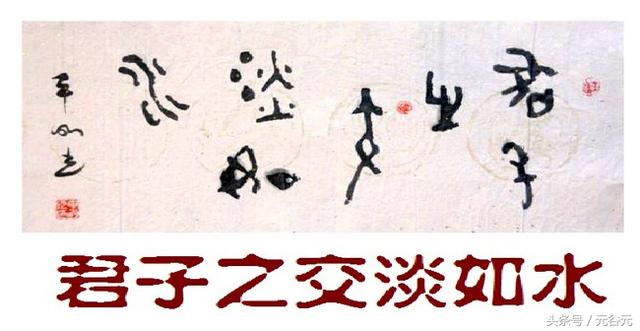 君子之交淡如水
君子之交淡如水
头条号 / 元谷元